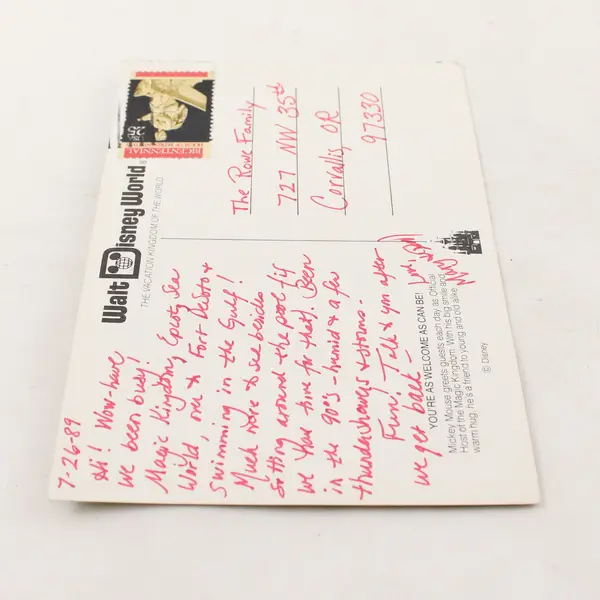 Walt Disney World®
THE VACATION KINGDOM OF THE WORLD
7-26-89
Hi! Wow-have
we been busy!
Magic Kingdom, Epcot, Sea
World, over to Fort DeSoto &
swimming in the Gulf!
Much more to see besides
sitting around the pool (if
we have time for that). Been
in the 90's - humid & a few
thundershowers & storms -
Fun! Talk to you after
we get back -
The Rowe Family
727 NW 35th
Corvallis, OR
97330
BICENTENNIAL
YOU'RE AS WELCOME AS CAN BE!
Mickey Mouse greets guests each day as Official
Host of the Magic Kingdom. With his big smile and
warm hug, he's a friend to young and old alike.
© Disney